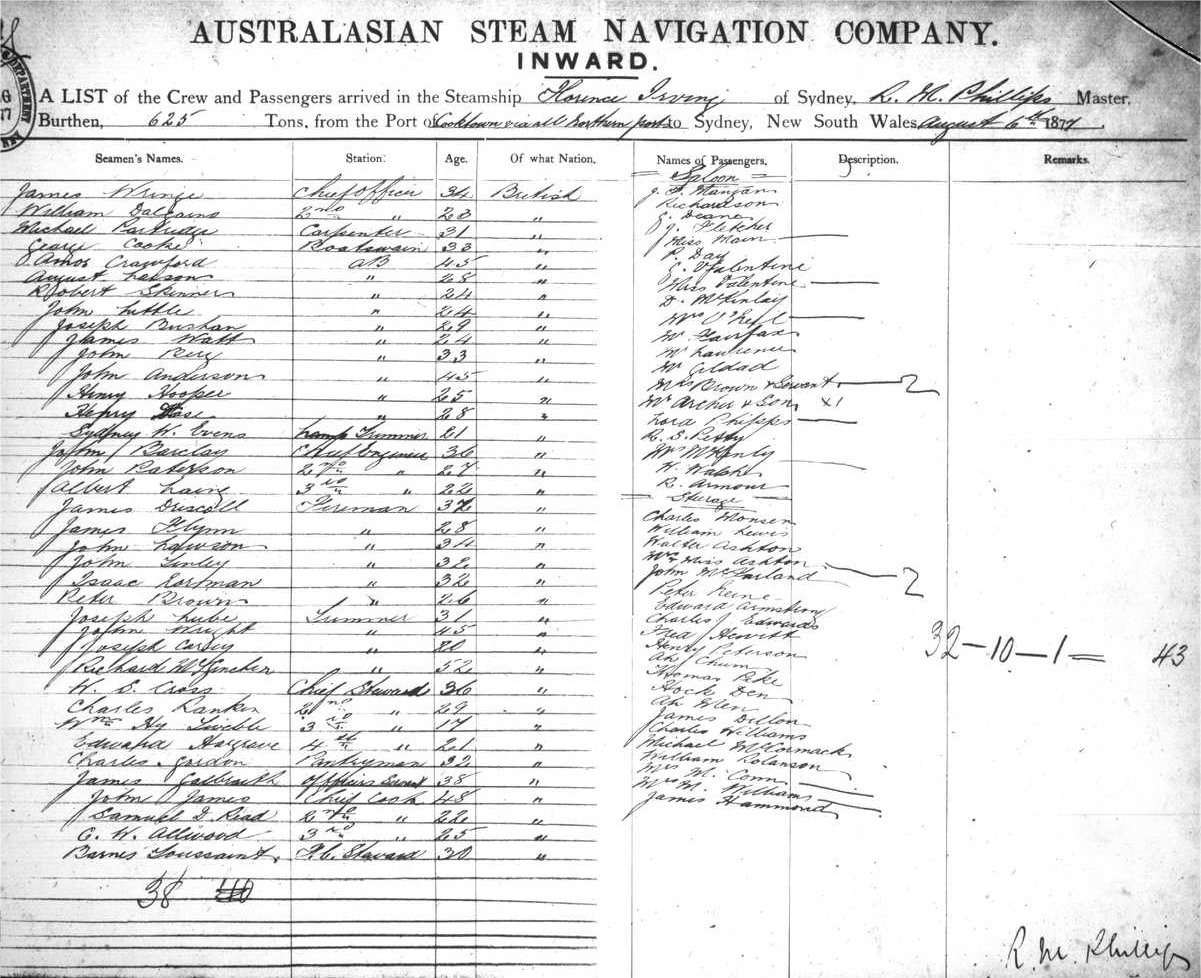 AUSTRALASIAN STEAM NAVIGATION COMPANY.
INWARD.
A LIST of the Crew and Passengers arrived in the Steamship Florence Irving of Sydney, R. M. Phillips Master,
Burthen, 625 Tons, from the Port of Cooktown via all Northern ports to Sydney, New South Wales August 6th 1877
Seamen's Names. Station. Age. Of what Nation. Names of Passengers. Description. Remarks.
Saloon
James Chief Officer 34 British
William Dalgairns 2nd " 28 "
Michael Partridge Carpenter 31 "
George Cooke Boatswain 33 "
Amos Crawford AB 45 "
August " 28 "
Robert Skinner " 24 "
John Little " 24 "
Joseph " 29 "
James Watt " 24 "
John " 33 "
John Anderson " 45 "
Henry Hooper " 25 "
Henry " 28 "
Sydney W. Evens Lamp Trimmer 21 "
John Barclay Chief Engineer 36 "
John Paterson 2nd " 27 "
Albert Laing 3rd " 22 "
James Driscoll Fireman 32 "
James Flynn " 28 "
John Lawson " 34 "
John Finley " 32 "
Isaac " 32 "
Peter Brown " 26 "
Joseph Trimmer 31 "
John Wright " 45 "
Joseph " "
Richard " 52 "
W. S. Cross Chief Steward 36 "
Charles Rankin 2nd " 29 "
Wm Hy 3rd " 17 "
Edward Hargrave 4th " 21 "
Charles Gordon Pantryman 32 "
James Galbraith Officers Servant 38 "
John James Chief Cook 48 "
Samuel D. Read 2nd " 22 "
C. W. Allwood 3rd " 25 "
Barnes Toussaint F.C. Steward 30 "
38
J. F. Mangan
Richardson
Deane
J. Fletcher
Miss Main
P. Day
Valentine
Miss Valentine
D. McKinlay
Mrs O'Neil
Mr Fairfax
Mr Lawrence
Mr Gildad
Mrs Brown & Servant 2
Mr Archer & Son X1
Phipps
R. S. Petty
Mrs
W. Walsh
R. Armour
Sterage
Charles Monsen
William Lewis
Walter Ashton
Mrs Miss Ashton 2
John McFarland
Peter
Edward Armstrong
Charles Edwards
Fred Hewitt
Henry Peterson
Ah Chum
Thomas Pike
Hock Den
Ah
James Dillon
Charles Williams
Michael McCormack
William
Mrs M. Conn
Mrs M. Williams
James Hammond
32 - 10 - 1 = 43
R. M. Phillips